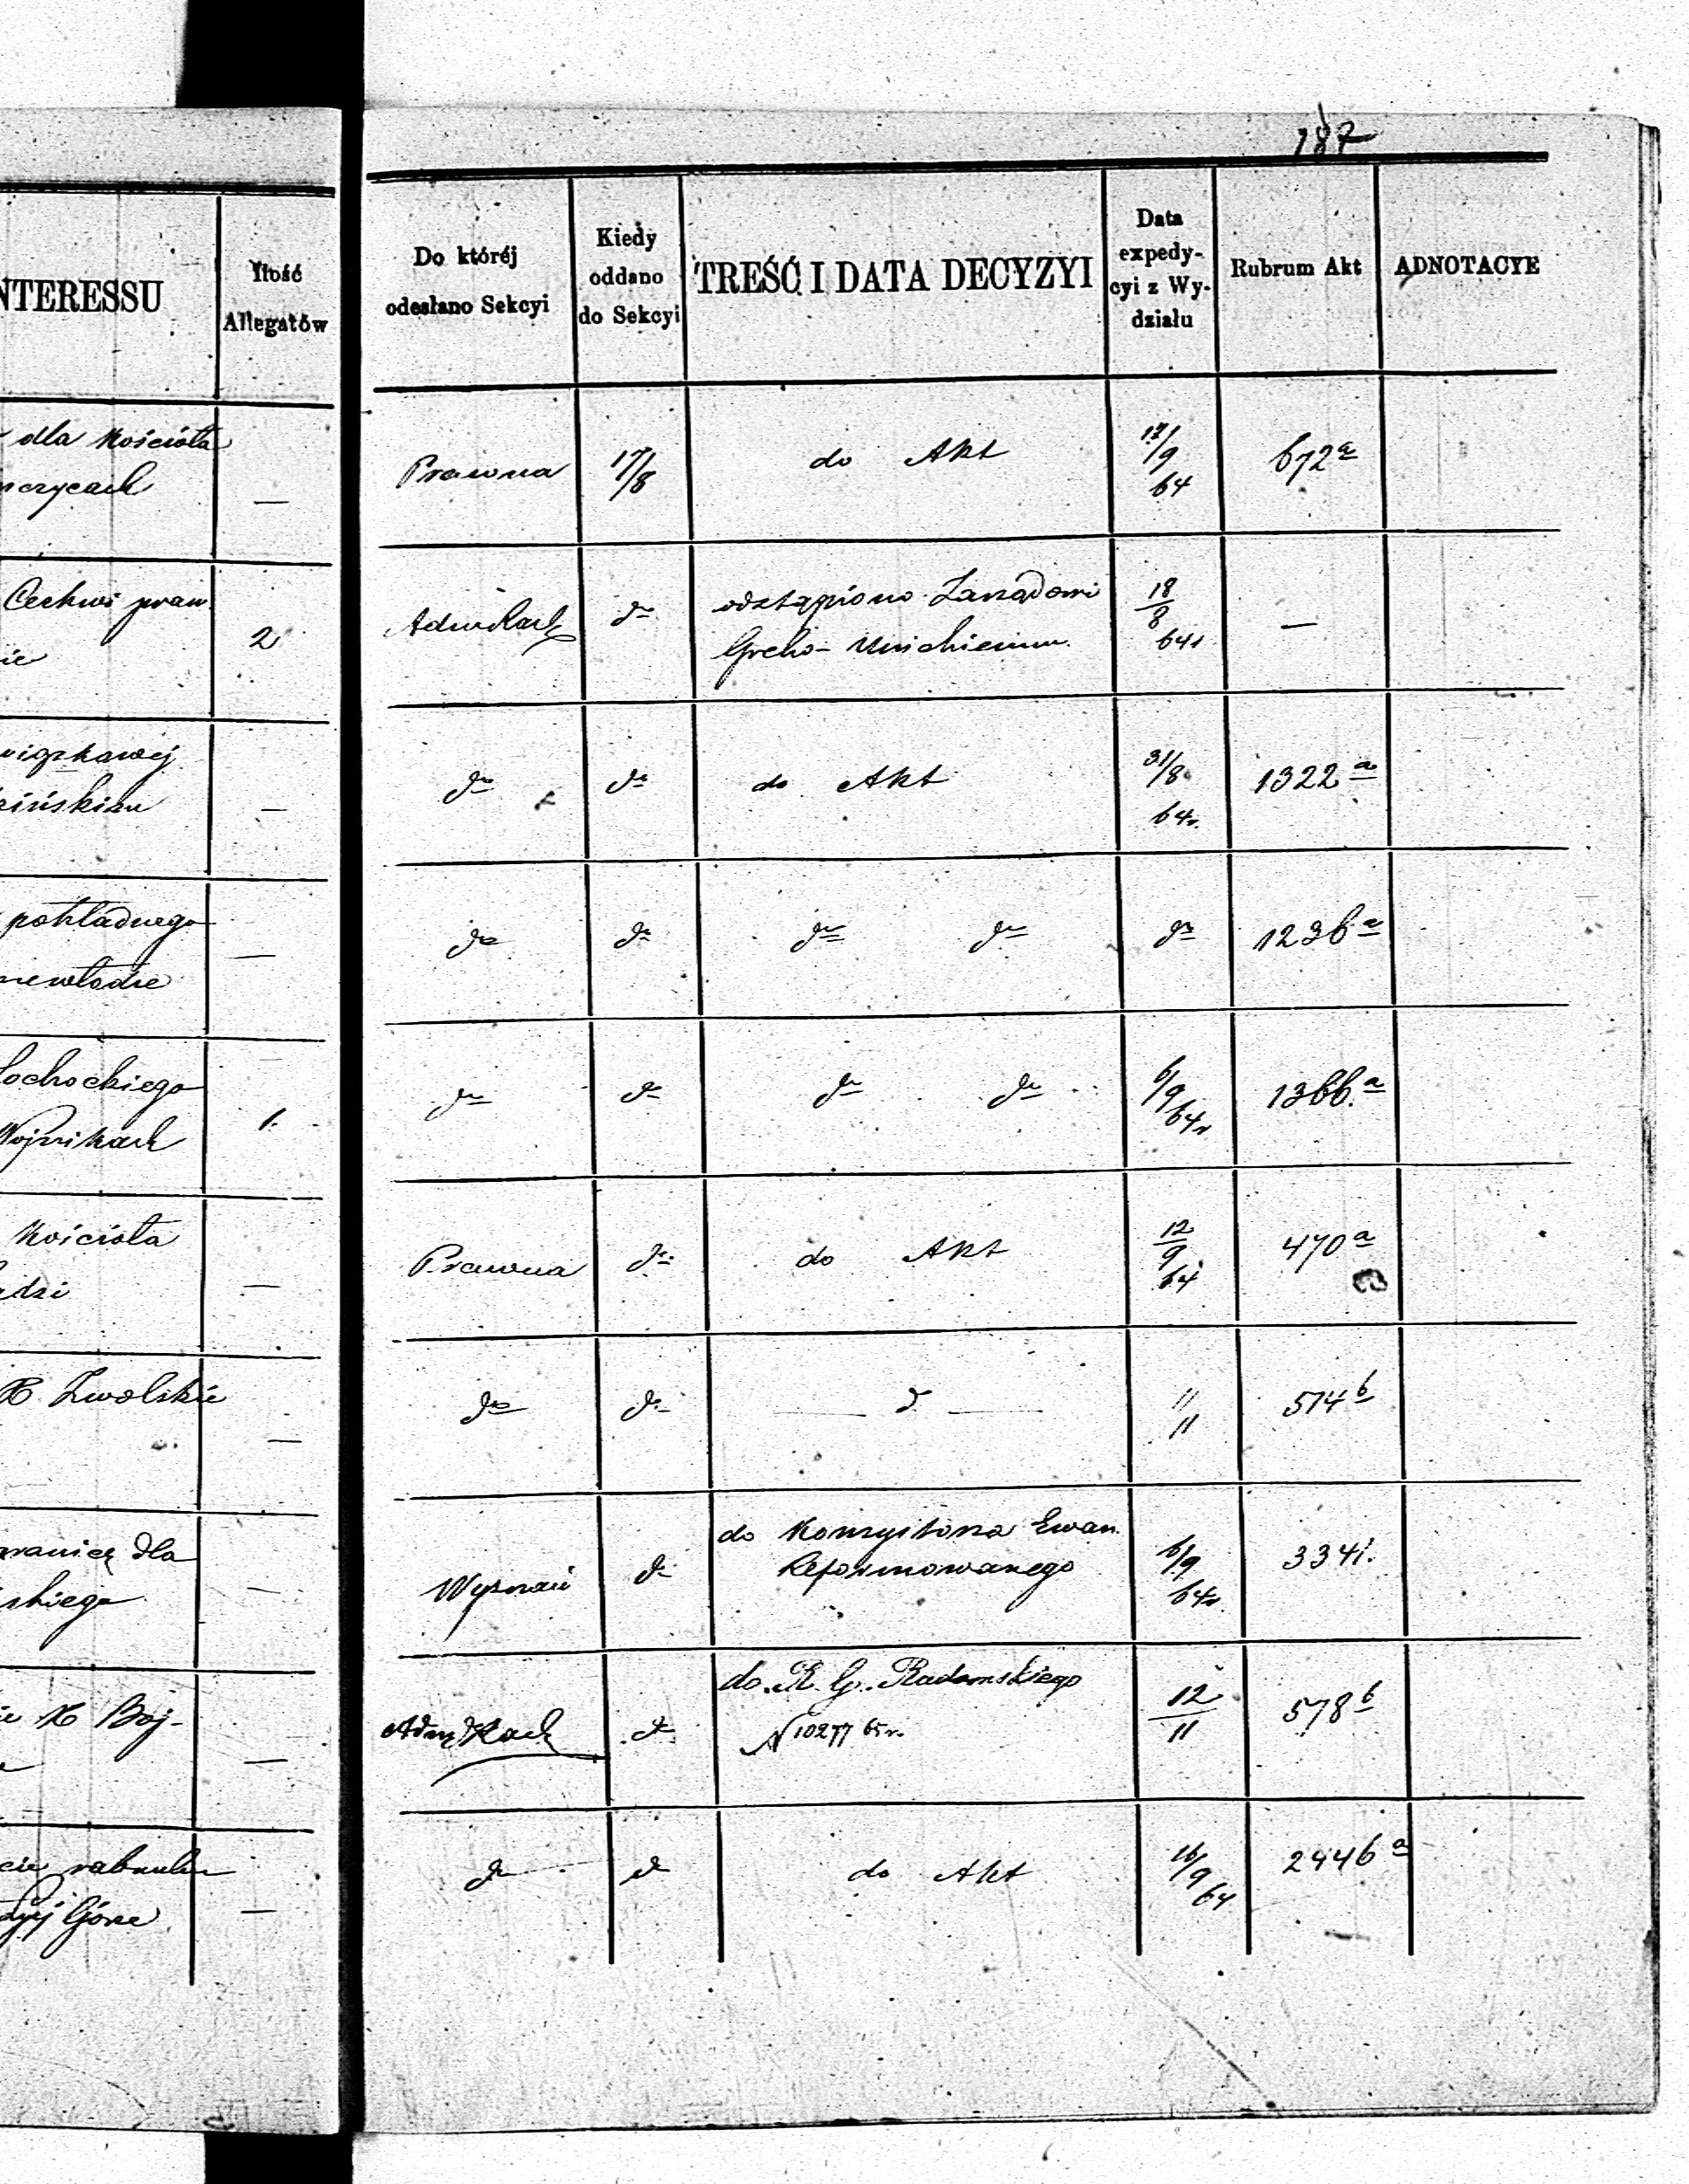 187
NTERESSU
Ilość
Allegatów
Do któréj
odesłano Sekcyi
Kiedy
oddano
do Sekcyi
TREŚĆ I DATA DECYZYI
Data
expedy-
cyi z Wy-
działu
Rubrum Akt
ADNOTACYE
dla Kościoła
—
Prawna
17/8
do Akt
17/9
64
672 a
Cerkwi praw.
2
do
odstąpiono Zarządowi
Grecko-Unickiemu
18
8
64r
—
—
do
do
do Akt
31/8
64r.
1322 a
pokładnego
—
do
do
do do
do
1236 a
Łochockiego
Wojnikach
1.
do
do
do do
6/9
64r
1366. a
Kościoła
—
Prawna
do
do Akt
12
9
64
470 a
X Zwolskie
—
do
do
— d —
11
11
574 b
dla
skiego
—
Wyznań
do
do Konsystorza Ewan.
Reformowanego
6/9
64r
334 i.
X Boj-
—
do
do R. G. Radomskiego
N 10277 65r.
12
11
578 b
Górze
—
do
do
do Akt
16/9
64
2446 a